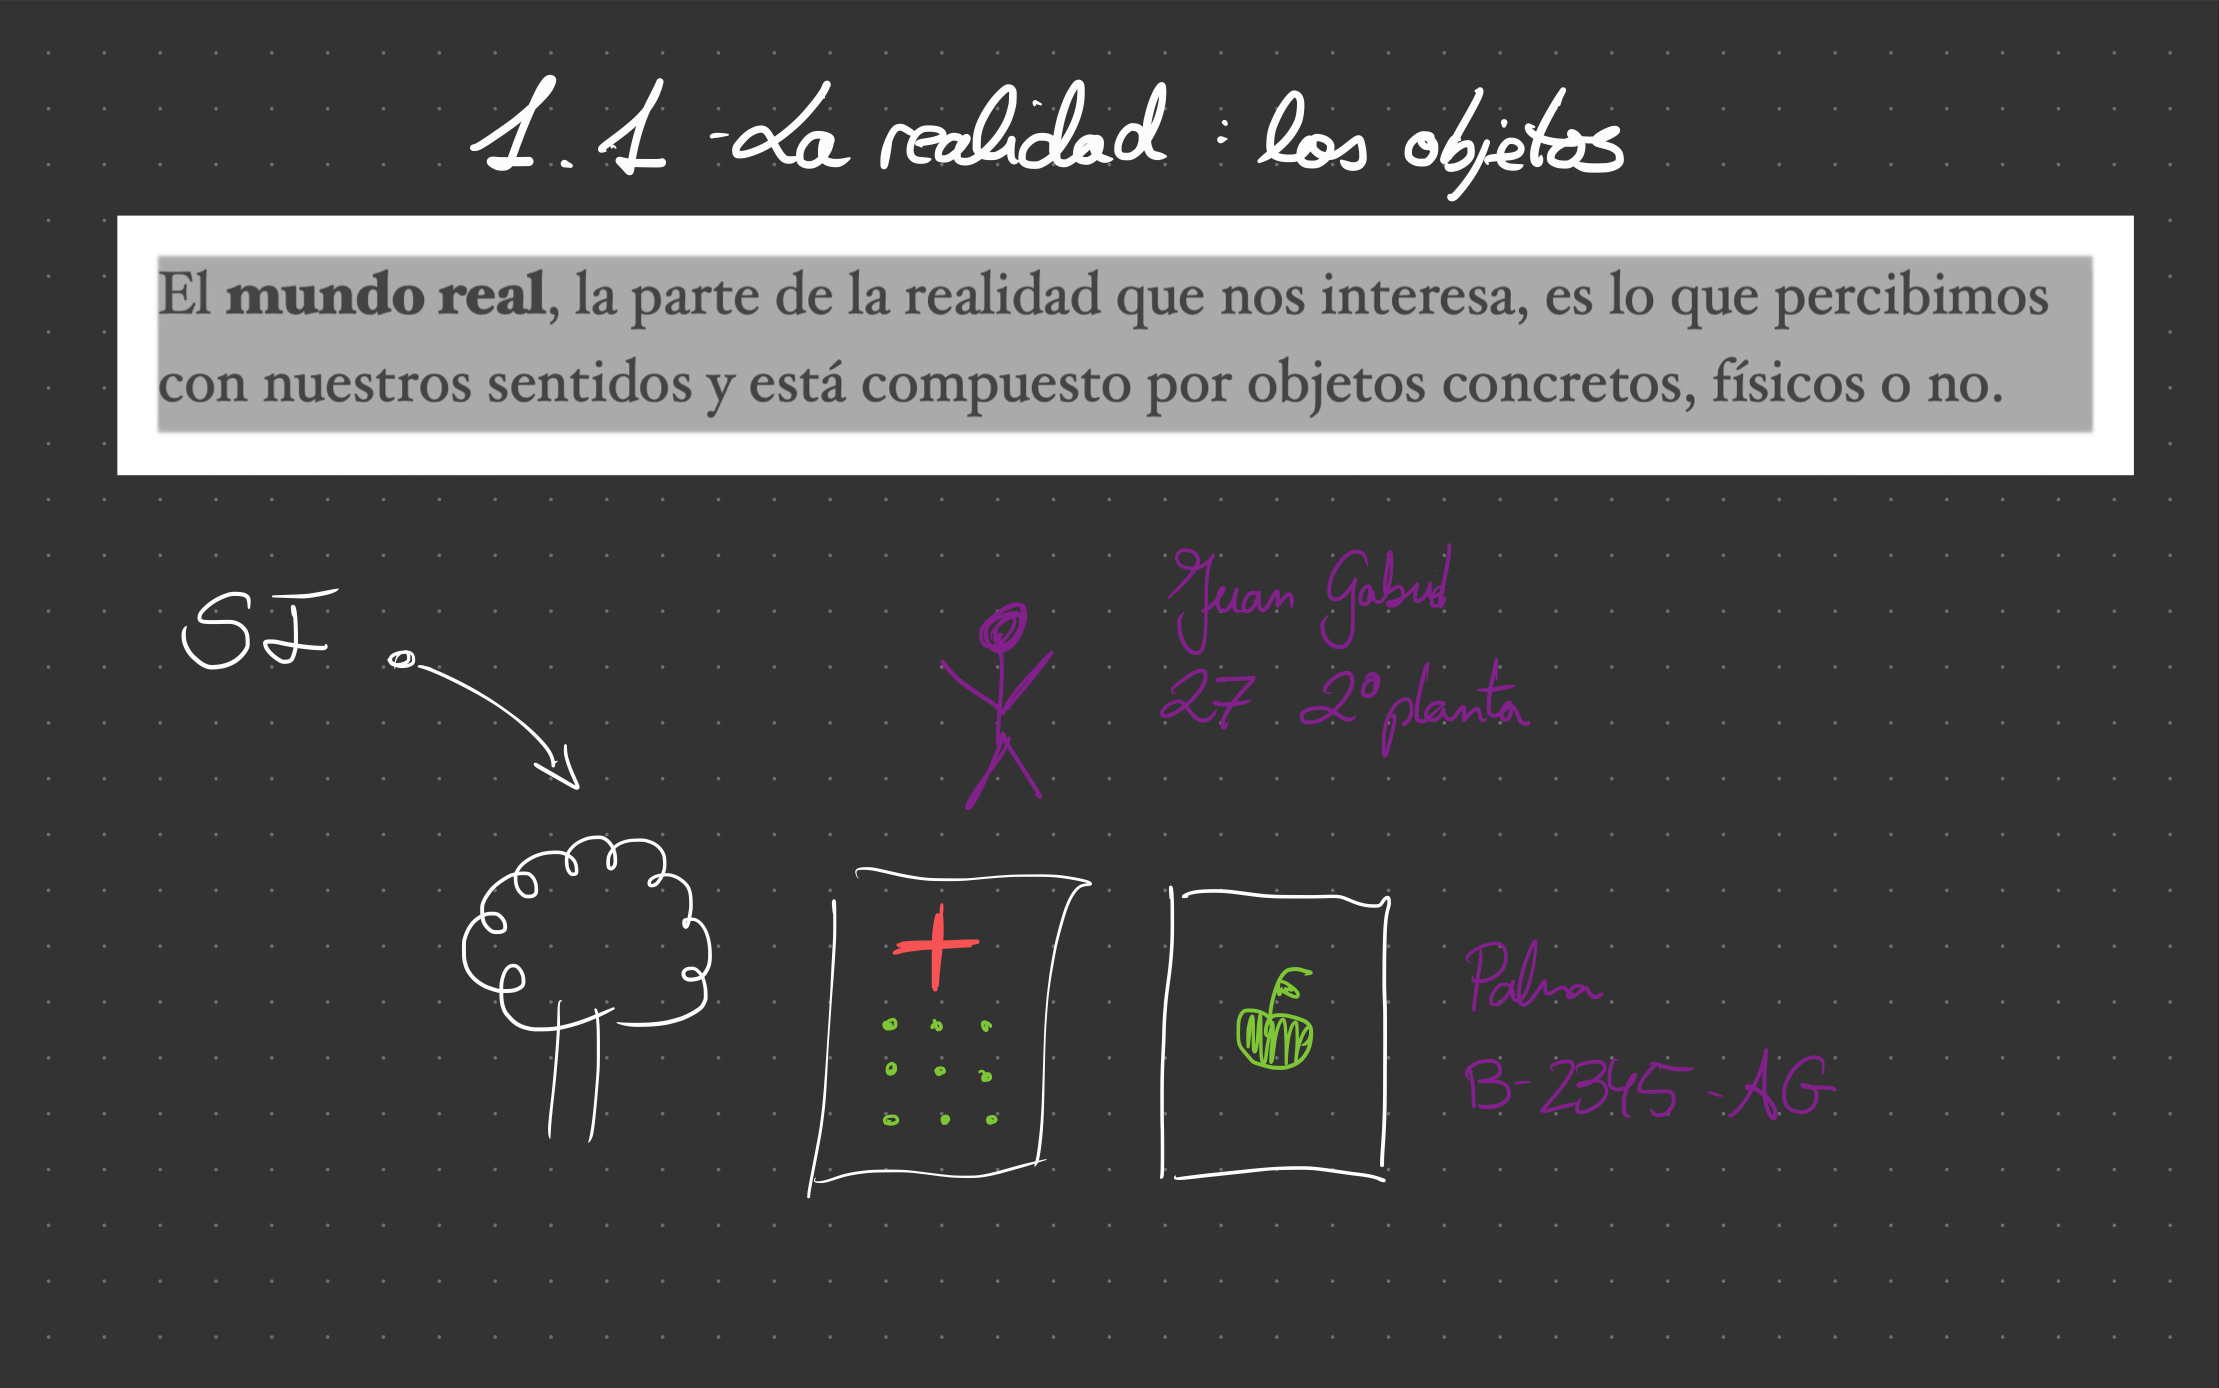 1.1 - La realidad: los objetos
El mundo real, la parte de la realidad que nos interesa, es lo que percibimos
con nuestros sentidos y está compuesto por objetos concretos, físicos o no.
SI
Juan Gabriel
27 2º planta
Palma
B-2345-AG